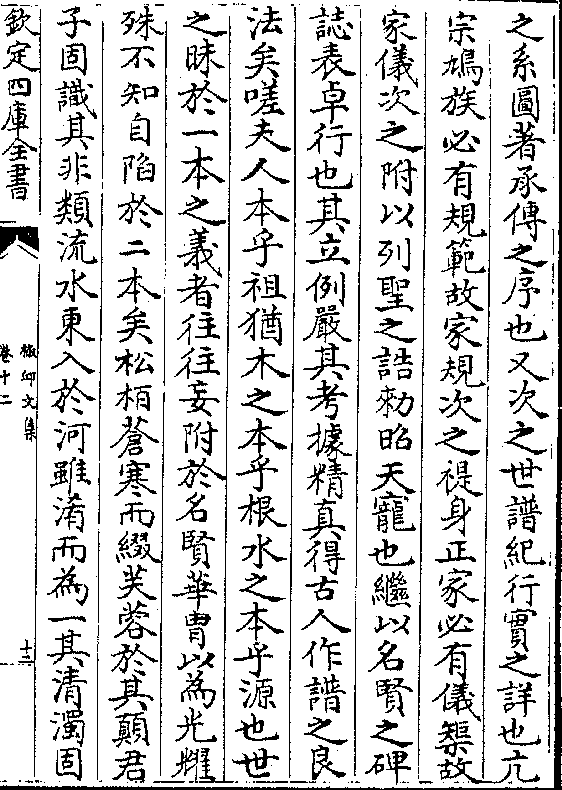 之系圖著承傳之序也又次之世譜紀行實之詳也亢
宗鳩族必有規範故家規次之禔身正家必有儀槼故
家儀次之附以列聖之誥勑昭天寵也繼以名賢之碑
誌表卓行也其立例嚴其考據精真得古人作譜之良
法矣嗟夫人本乎祖猶木之本乎根水之本乎源也世
之昧於一本之義者往往妄附於名賢華胄以為光耀
殊不知自陷於二本矣松栢蒼寒而綴芙蓉於其顛君
子固識其非類流水東入於河雖淆而為一其清濁固
欽定四庫全書
卷十二
文集
十二